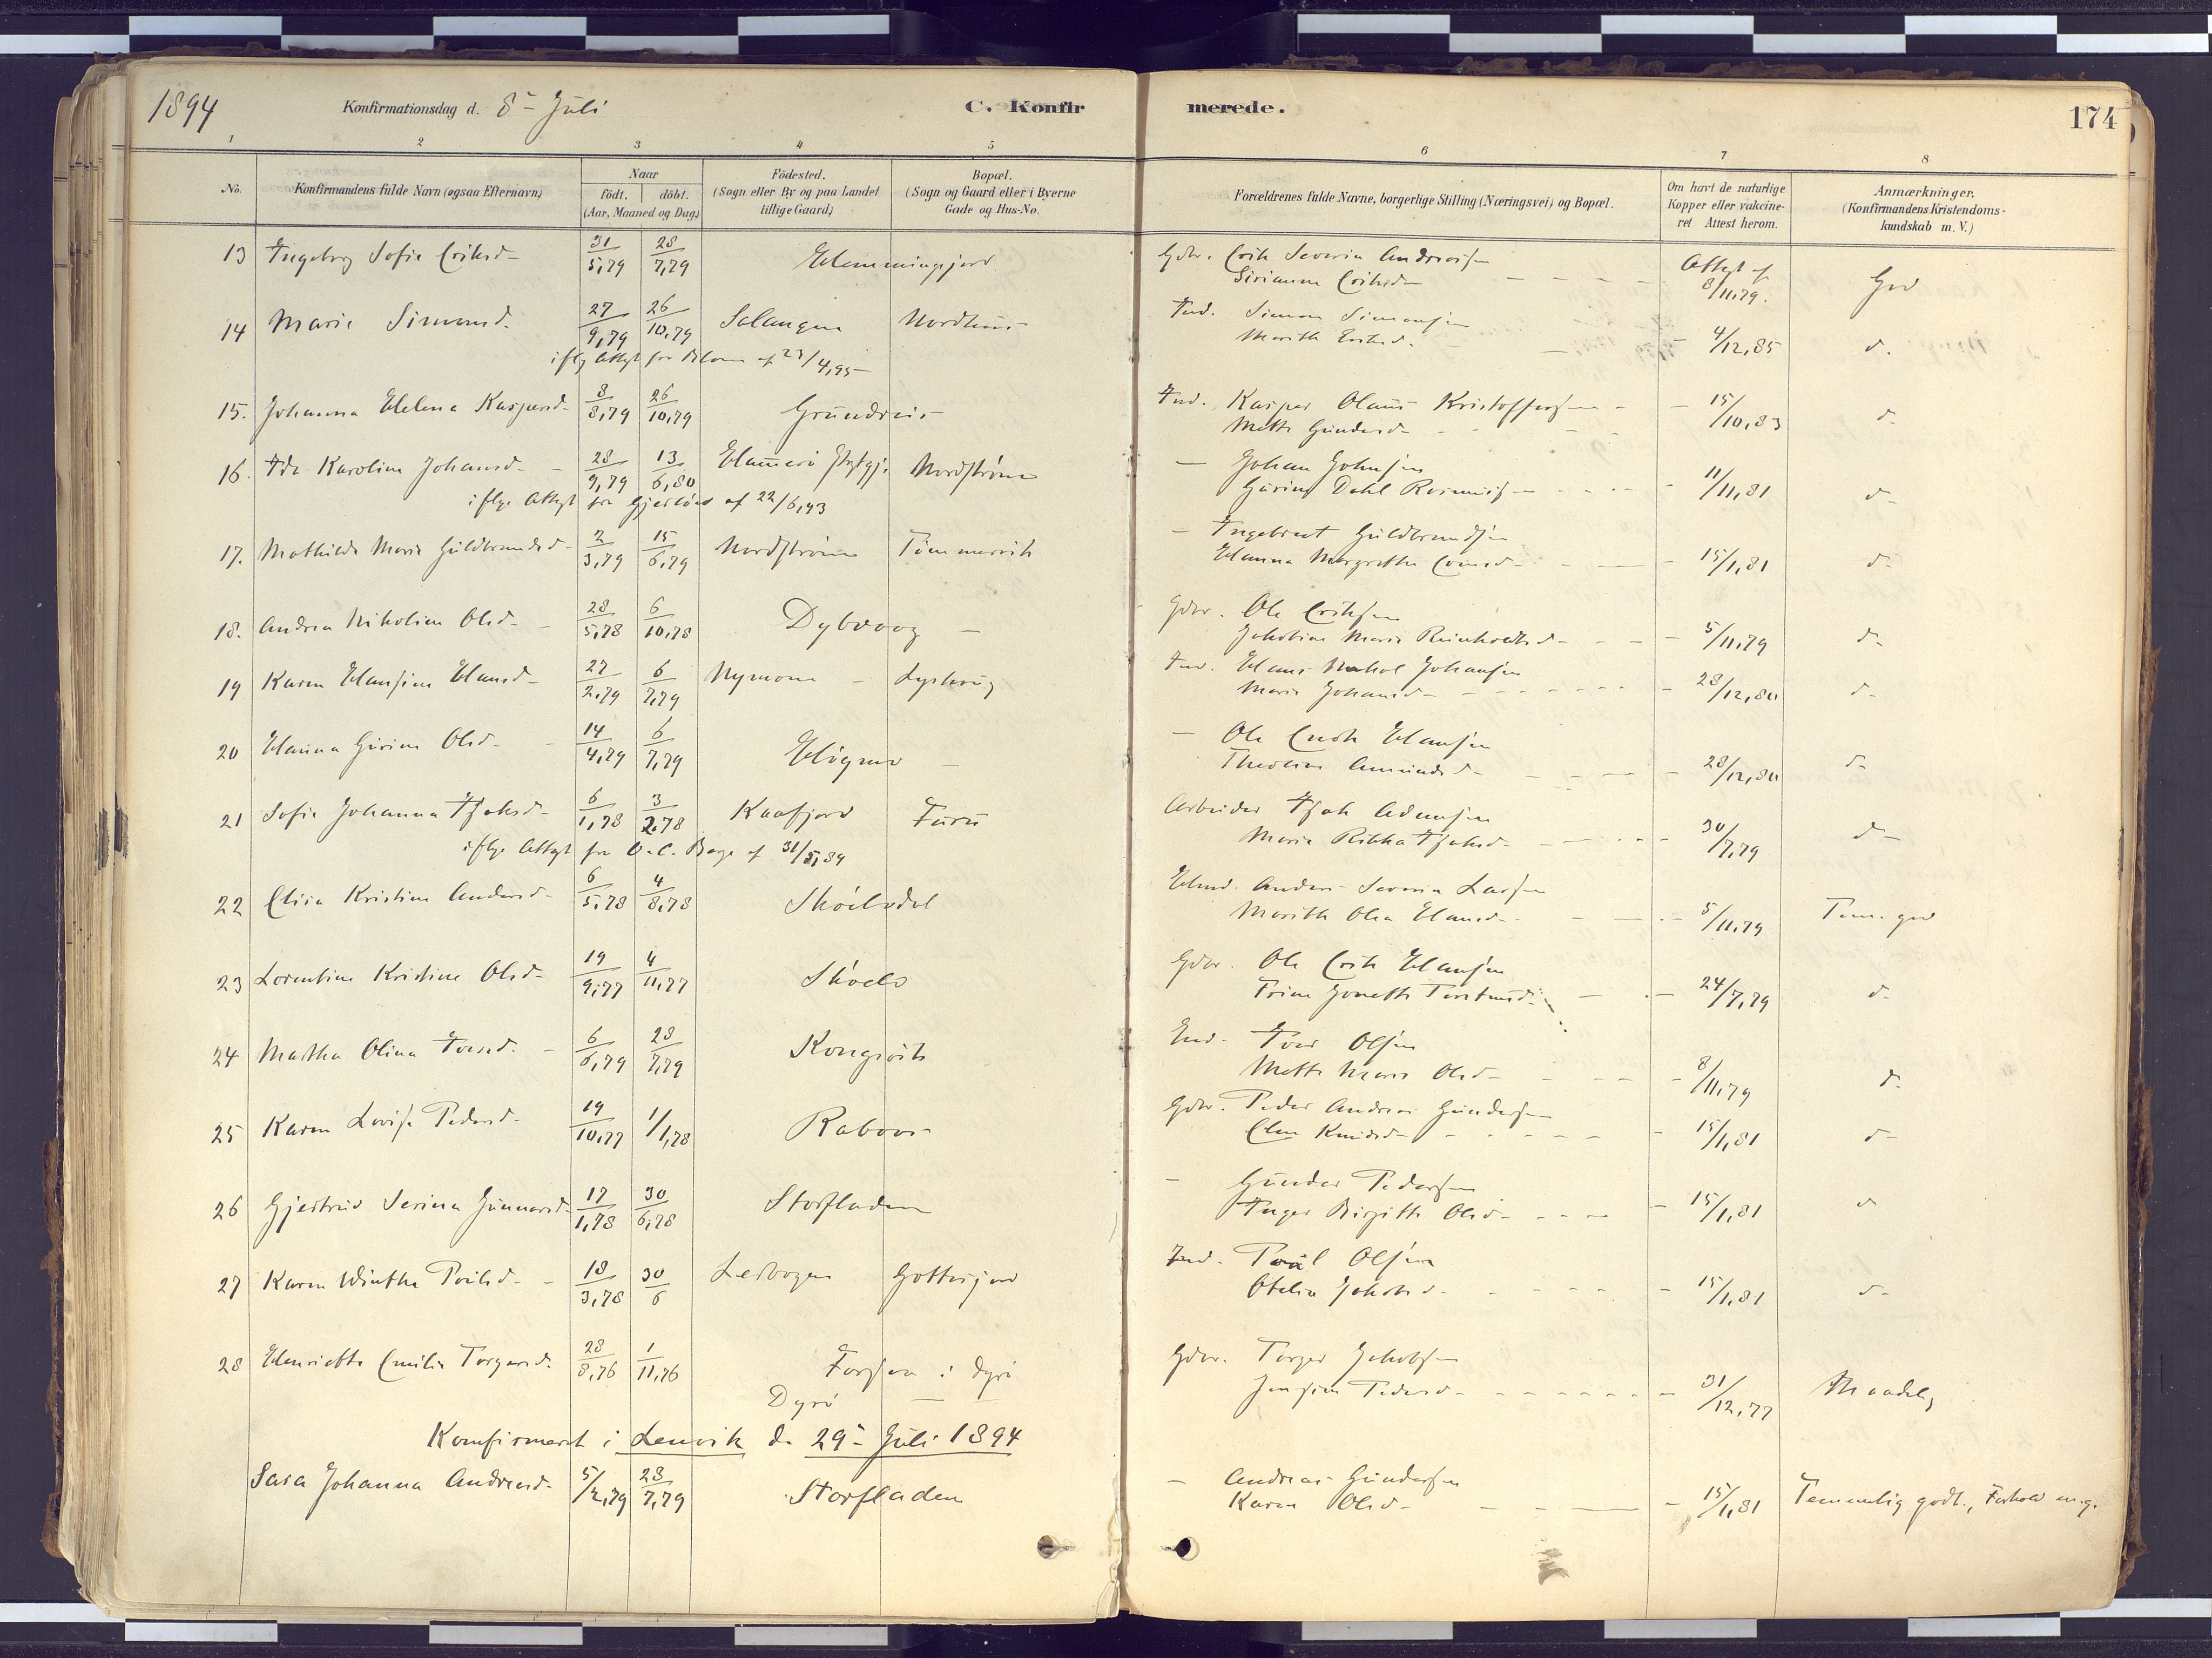 1894 Konfirmationsdag d. 8- Juli C. Konfir merede. 174
1 2 3 4 5 6 7 8
No. Konfirmandens fulde Navn (ogsaa Efternavn) Naar født. døbt. (Aar, Maaned og Dag) Fødested. (Sogn eller By og paa Landet tillige Gaard) Bopæl. (Sogn og Gaard eller i Byerne Gade og Hus-No. Forældrenes fulde Navne, borgerlige Stilling (Næringsvei) og Bopæl. Om havt de naturlige Kopper eller vakcineret Attest herom. Anmærkninger. (Konfirmandens Kristendomskundskab m. V.)
13 Ingeborg Sofie Eriksd- 31/5,79 28/7,79 Hemmingsjord Gbr. Erik Severin Andreass
Sirianna Eriksd- Attest af 8/11,79. God
14 Marie Simonsd. 27/9,79 26/10,79 Salangen Nordhus Ind. Simon Simonsen
Marith 4/12,85 d.
i flg Attest fra af 23/4,95
15. Johanna Helena Kaspersd- 8/8,79 26/10,79 Grundreis Ind. Kasper Olaus Kristoffers
Mette Gundersd- 15/10,83 d-
16. Ida Karoline Johansd- 28/9,79 13/6,80 Nordstrøm - Johan Johnsen
Gurine Dahl 11/11,81 d-
i flge Attest fra af 22/6,93
17. Mathilde Marie Guldbrandsd- 2/3,79 15/6,79 Nordstrøm Tømmervik - Ingebrect Guldbrandsen
Hanna Margrethe 15/1,81 d-
18. Andrea Nikoline Olsd- 28/5,78 6/10,78 Dybvaag - Gbr. Ole Eriksen
Jakobine Marie Reinholdtsd- 5/11,79 d-
19 Karen Hansine Hansd- 27/2,79 6/7,79 Nymoen - Lysbug Ind. Hans Johansen
Marie Johansd- 28/12,80 d-
20 Hanna Gurine Olsd- 14/4,79 6/7,79 Høgmo - - Ole Hansen
Amundsd- 28/12,80 d-
21 Sofie Johanna Isaksd- 6/1,78 3/2,78 Kaafjord Furu Arbeider Isak Adamsen
Marie Rikka Isaksd- 30/7,79 d-
i flge Attest fra O. C. Berge af 31/5,89
22 Elisa Kristine Andersd- 6/5,78 4/8,78 Skøelvdal Anders Severin Larsen
Marith Olea Hansd- 5/11,79 Tem. god
23 Lorentine Kristine Olsd- 19/9,77 4/11,77 Skøelv Gbr. Ole Erik Hansen
Trine Jonette 24/7,79 d-
24 Martha Olina Iversd. 6/6,79 28/7,79 Kongsvik Ind. Iver Olsen
Mette Marie Olsd- 8/11,79 d-
25 Karen Lovise Pedersd- 19/10,77 1/1,78 Rabaas Gbr. Peder Andreas Gundersen
Elen Knudsd- 15/1,81 d-
26 Gjertrud Serina Gunnarsd- 17/1,78 30/6,78 Storfladen - Gunder Pedersen
Inger Birgitte Olsd- 15/1,81 d
27 Karen Winthe Poulsd- 18/3,78 30/6 Ledbogen Gottesjord Ind. Poul Olsen
Otelia Jakobsd- 15/1,81 d-
28 Henriette Emilie Torgersd. 28/8,76 1/11,76 Forsøen i Dyrø
Dyrø Gbr. Torger Jakobsen
Jensine Pedersd- 31/12,77 Maadelig
Konfirmeret i Lenvik d. 29- Juli 1894
Sara Johanna Andreasd- 5/2,79 28/7,79 Storfladen - Andreas Gundersen
Karen Olsd- 15/1,81 Temmelig godt., Forhold m.g.